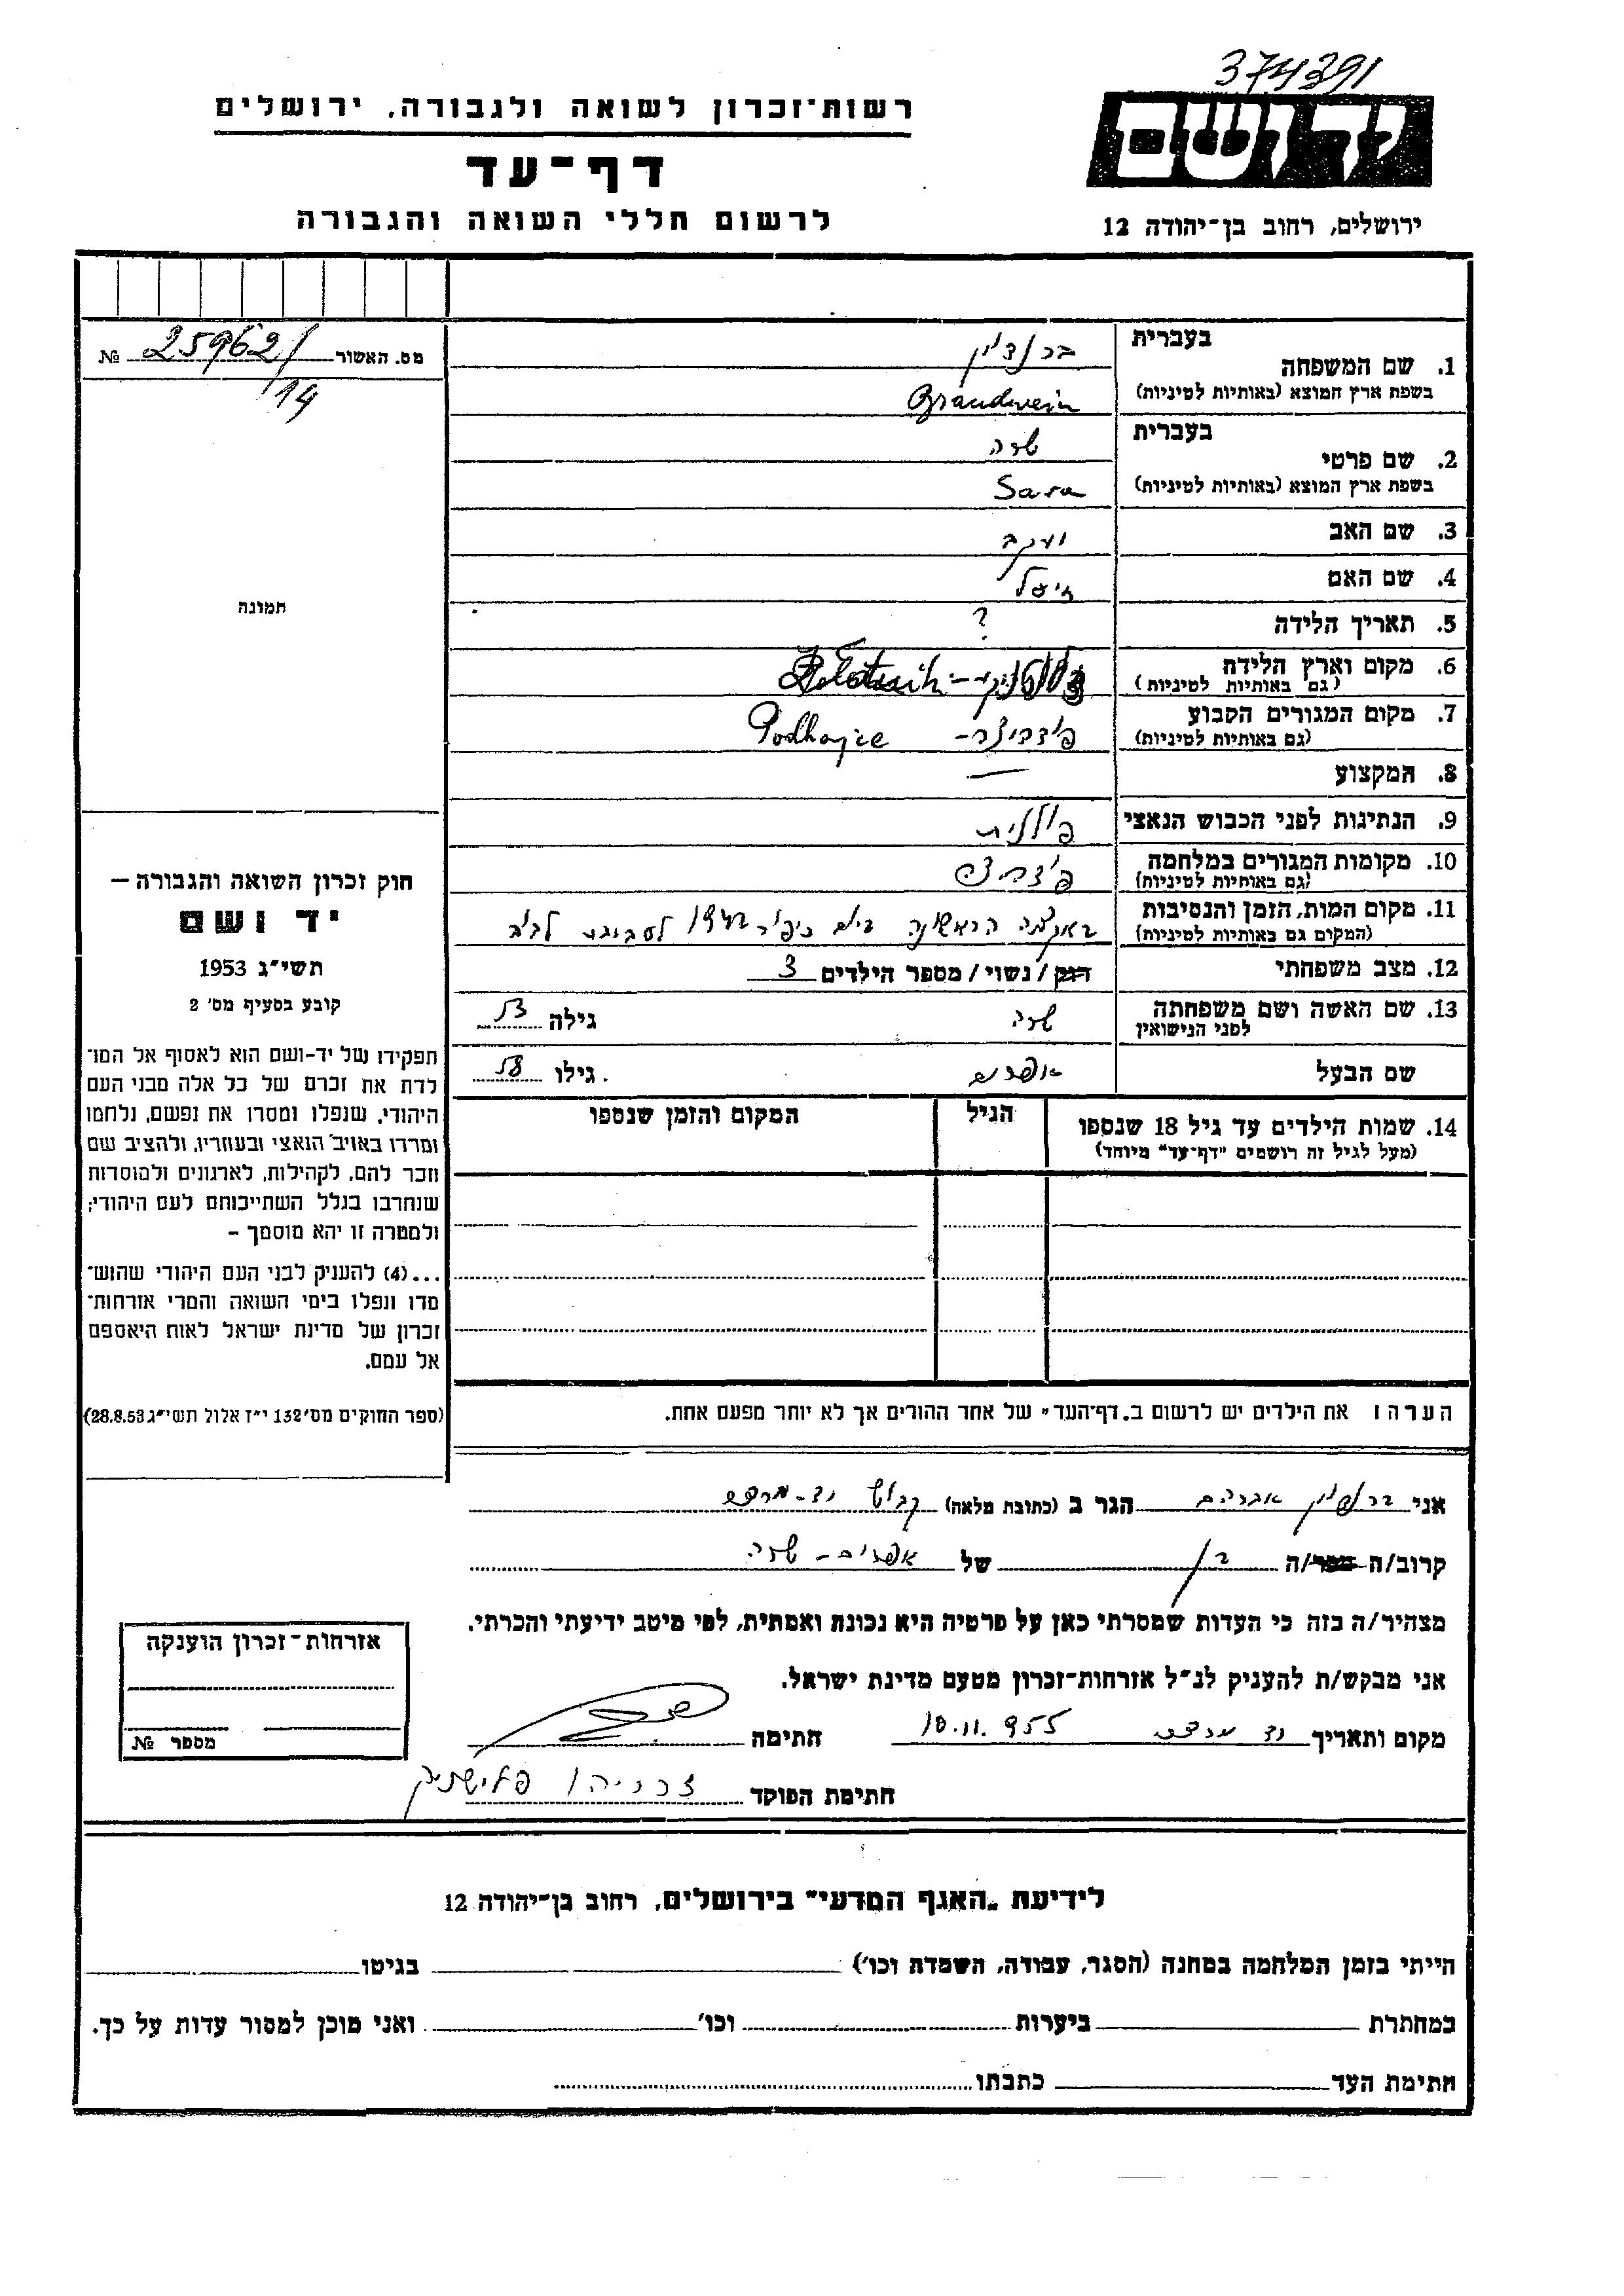 374391
רשות־זכרון לשואה ולגבורה, ירושלים
יד ושם
דף־עד
לרשום חללי השואה והגבורה
ירושלים, רחוב בן־יהודה 12
מס. האשור 25962/ №
14
בעברית
1. שם המשפחה
בשפת ארץ המוצא (באותיות לטיניות) Brandwein
בעברית
2. שם פרטי שרה
בשפת ארץ המוצא (באותיות לטיניות) Sara
3. שם האב יעקב
4. שם האם
תמונה
5. תאריך הלידה ?
6. מקום וארץ הלידה
(גם באותיות לטיניות)
7. מקום המגורים הקבוע Podhajce
(גם באותיות לטיניות)
8. המקצוע —
9. הנתינות לפני הכבוש הנאצי פולנית
10. מקומות המגורים במלחמה
(גם באותיות לטיניות)
11. מקום המות, הזמן והנסיבות באקציה הראשונה ביום כיפור 1942 לסביבת לבוב
(המקום גם באותיות לטיניות)
12. מצב משפחתי רווק/נשוי/מספר הילדים 3
13. שם האשה ושם משפחתה שרה גילה 53
לפני הנישואין
שם הבעל אפרים גילו 58
14. שמות הילדים עד גיל 18 שנספו הגיל המקום והזמן שנספו
(מעל לגיל זה רושמים "דף־עד" מיוחד)
הערה: את הילדים יש לרשום ב„דף־העד" של אחד ההורים אך לא יותר מפעם אחת.
חוק זכרון השואה והגבורה —
יד ושם
תשי"ג 1953
קובע בסעיף מס' 2
תפקידו של יד-ושם הוא לאסוף אל המו־
לדת את זכרם של כל אלה מבני העם
היהודי, שנפלו ומסרו את נפשם, נלחמו
ומרדו באויב הנאצי ובעוזריו, ולהציב שם
וזכר להם, לקהילות, לארגונים ולמוסדות
שנחרבו בגלל השתייכותם לעם היהודי;
ולמטרה זו יהא מוסמך –
...(4) להעניק לבני העם היהודי שהוש־
מדו ונפלו בימי השואה והמרי אזרחות־
זכרון של מדינת ישראל לאות היאספם
אל עמם.
(ספר החוקים מס' 132 י"ז אלול תשי"ג 28.8.53)
אני אברהם הגר ב (כתובת מלאה) קבוץ יד-מרדכי
קרוב/ה מכר/ה בן של אפרים - שרה
מצהיר/ה בזה כי העדות שמסרתי כאן על פרטיה היא נכונה ואמתית, לפי מיטב ידיעתי והכרתי.
אני מבקש/ת להעניק לנ"ל אזרחות־זכרון מטעם מדינת ישראל.
מקום ותאריך יד מרדכי 10.11.955 חתימה
חתימת הפוקד זכריהו
אזרחות־זכרון הוענקה
מספר №
לידיעת „האגף המדעי" בירושלים, רחוב בן־יהודה 12
הייתי בזמן המלחמה במחנה (הסגר, עבודה, השמדה וכו') בגיטו
במחתרת ביערות וכו' ואני מוכן למסור עדות על כך.
חתימת העד כתבתו